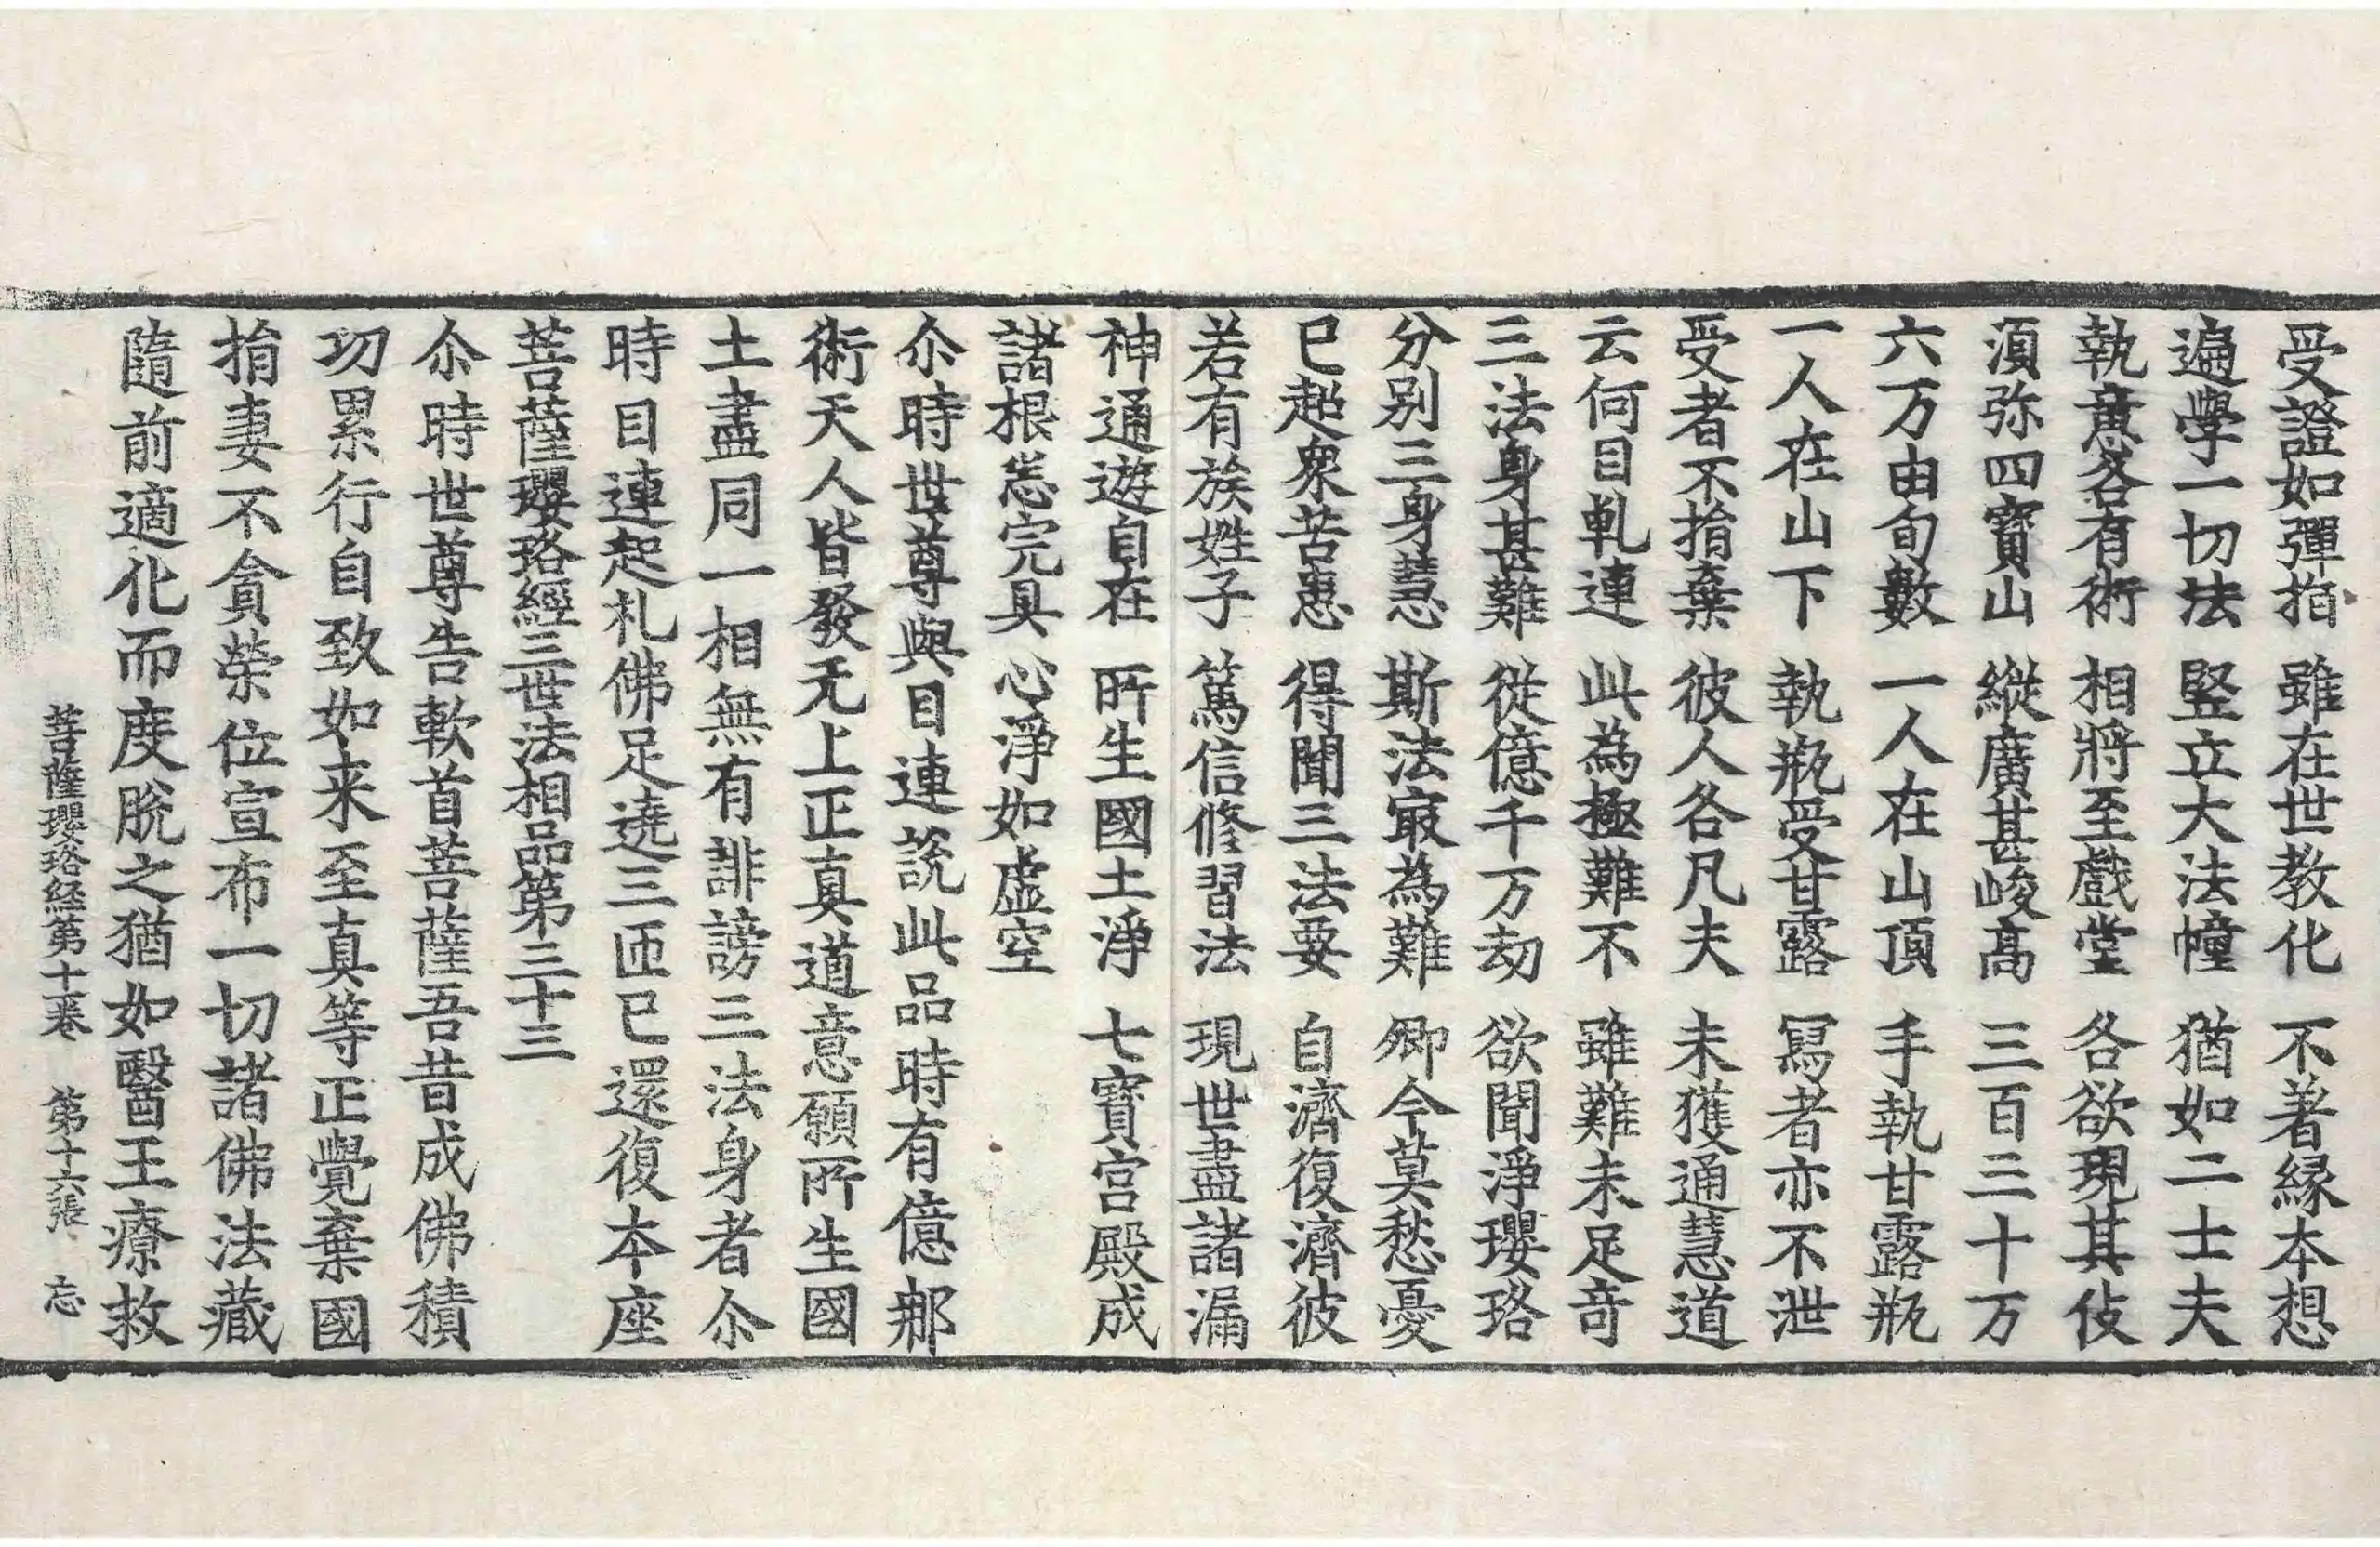 受證如彈指　雖在世教化　不著縁本想
遍學一切法　竪立大法幢　猶如二士夫
執意各有術　相將至戲堂　各欲現其伎
湏弥四寳山　縱廣甚峻高　三百三十万
六万由旬數　一人在山頂　手執甘露瓶
一人在山下　執瓶受甘露　冩者亦不泄
受者不捐棄　彼人各凡夫　未獲通慧道
云何目乹連　此為極難不　雖難未足奇
三法身甚難　從億千万劫　欲聞淨瓔珞
分別三身慧　斯法㝡為難　卿今莫愁憂
已超衆苦患　得聞三法要　自濟復濟彼
若有族姓子　篤信修習法　現世盡諸漏
神通遊自在　所生國土淨　七寳宫殿成
諸根悉完具　心淨如虚空
尒時世尊與目連説此品時有億那
術天人皆發无上正真道意願所生國
土盡同一相無有誹謗三法身者尒
時目連起礼佛足遶三匝已還復本座
菩薩瓔珞經三世法相品第三十三
尒時世尊告軟首菩薩吾昔成佛積
功累行自致如来至真等正覺棄國
捐妻不貪榮位宣布一切諸佛法藏
隨前適化而度脫之猶如醫王療救
菩薩瓔珞経第十一卷　第十六張　忘